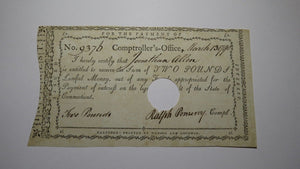 FOR THE PAYMENT OF
No. 9376 Comptroller's-Office, March 15th
I hereby certify that Jonathan Allin
is entitled to receive the Sum of TWO POUNDS
Lawful Money, out of any appropriated for the
Payment of interest on the of the State of
Connecticut.
Two Pounds Ralph Pomeroy Compt.
HARTFORD: PRINTED BY HUDSON AND GOODWIN.